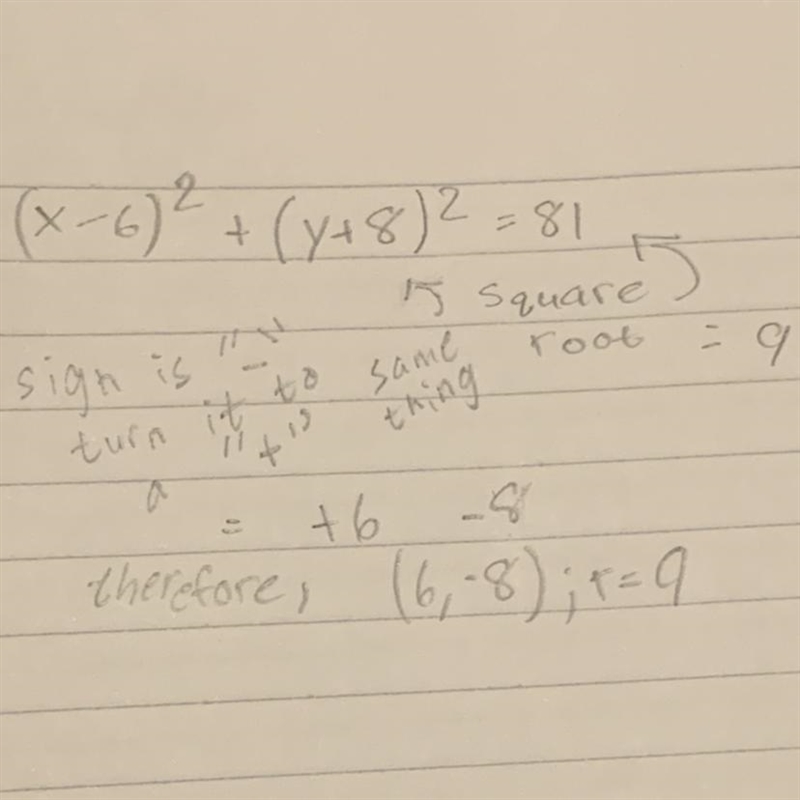 (x-6)² + (y+8)² = 81
square
sign is "-" same root = 9
turn it to thing
a "+"
= +6 -8
therefore, (6,-8); r=9